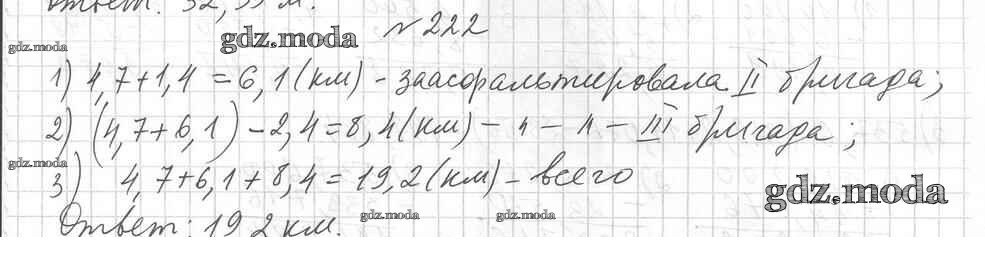 Ответ: 32,
№ 222
gdz.moda
gdz.moda
1) 4,7+1,4 = 6,1 (км) - заасфальтировала II бригада;
2) (4,7+6,1) - 2,4 = 8,4 (км) - и - и - III бригада;
gdz.moda
3) 4,7+6,1+8,4 = 19,2 (км) - всего
gdz.moda
gdz.moda
gdz.moda
Ответ: 19,2 км.